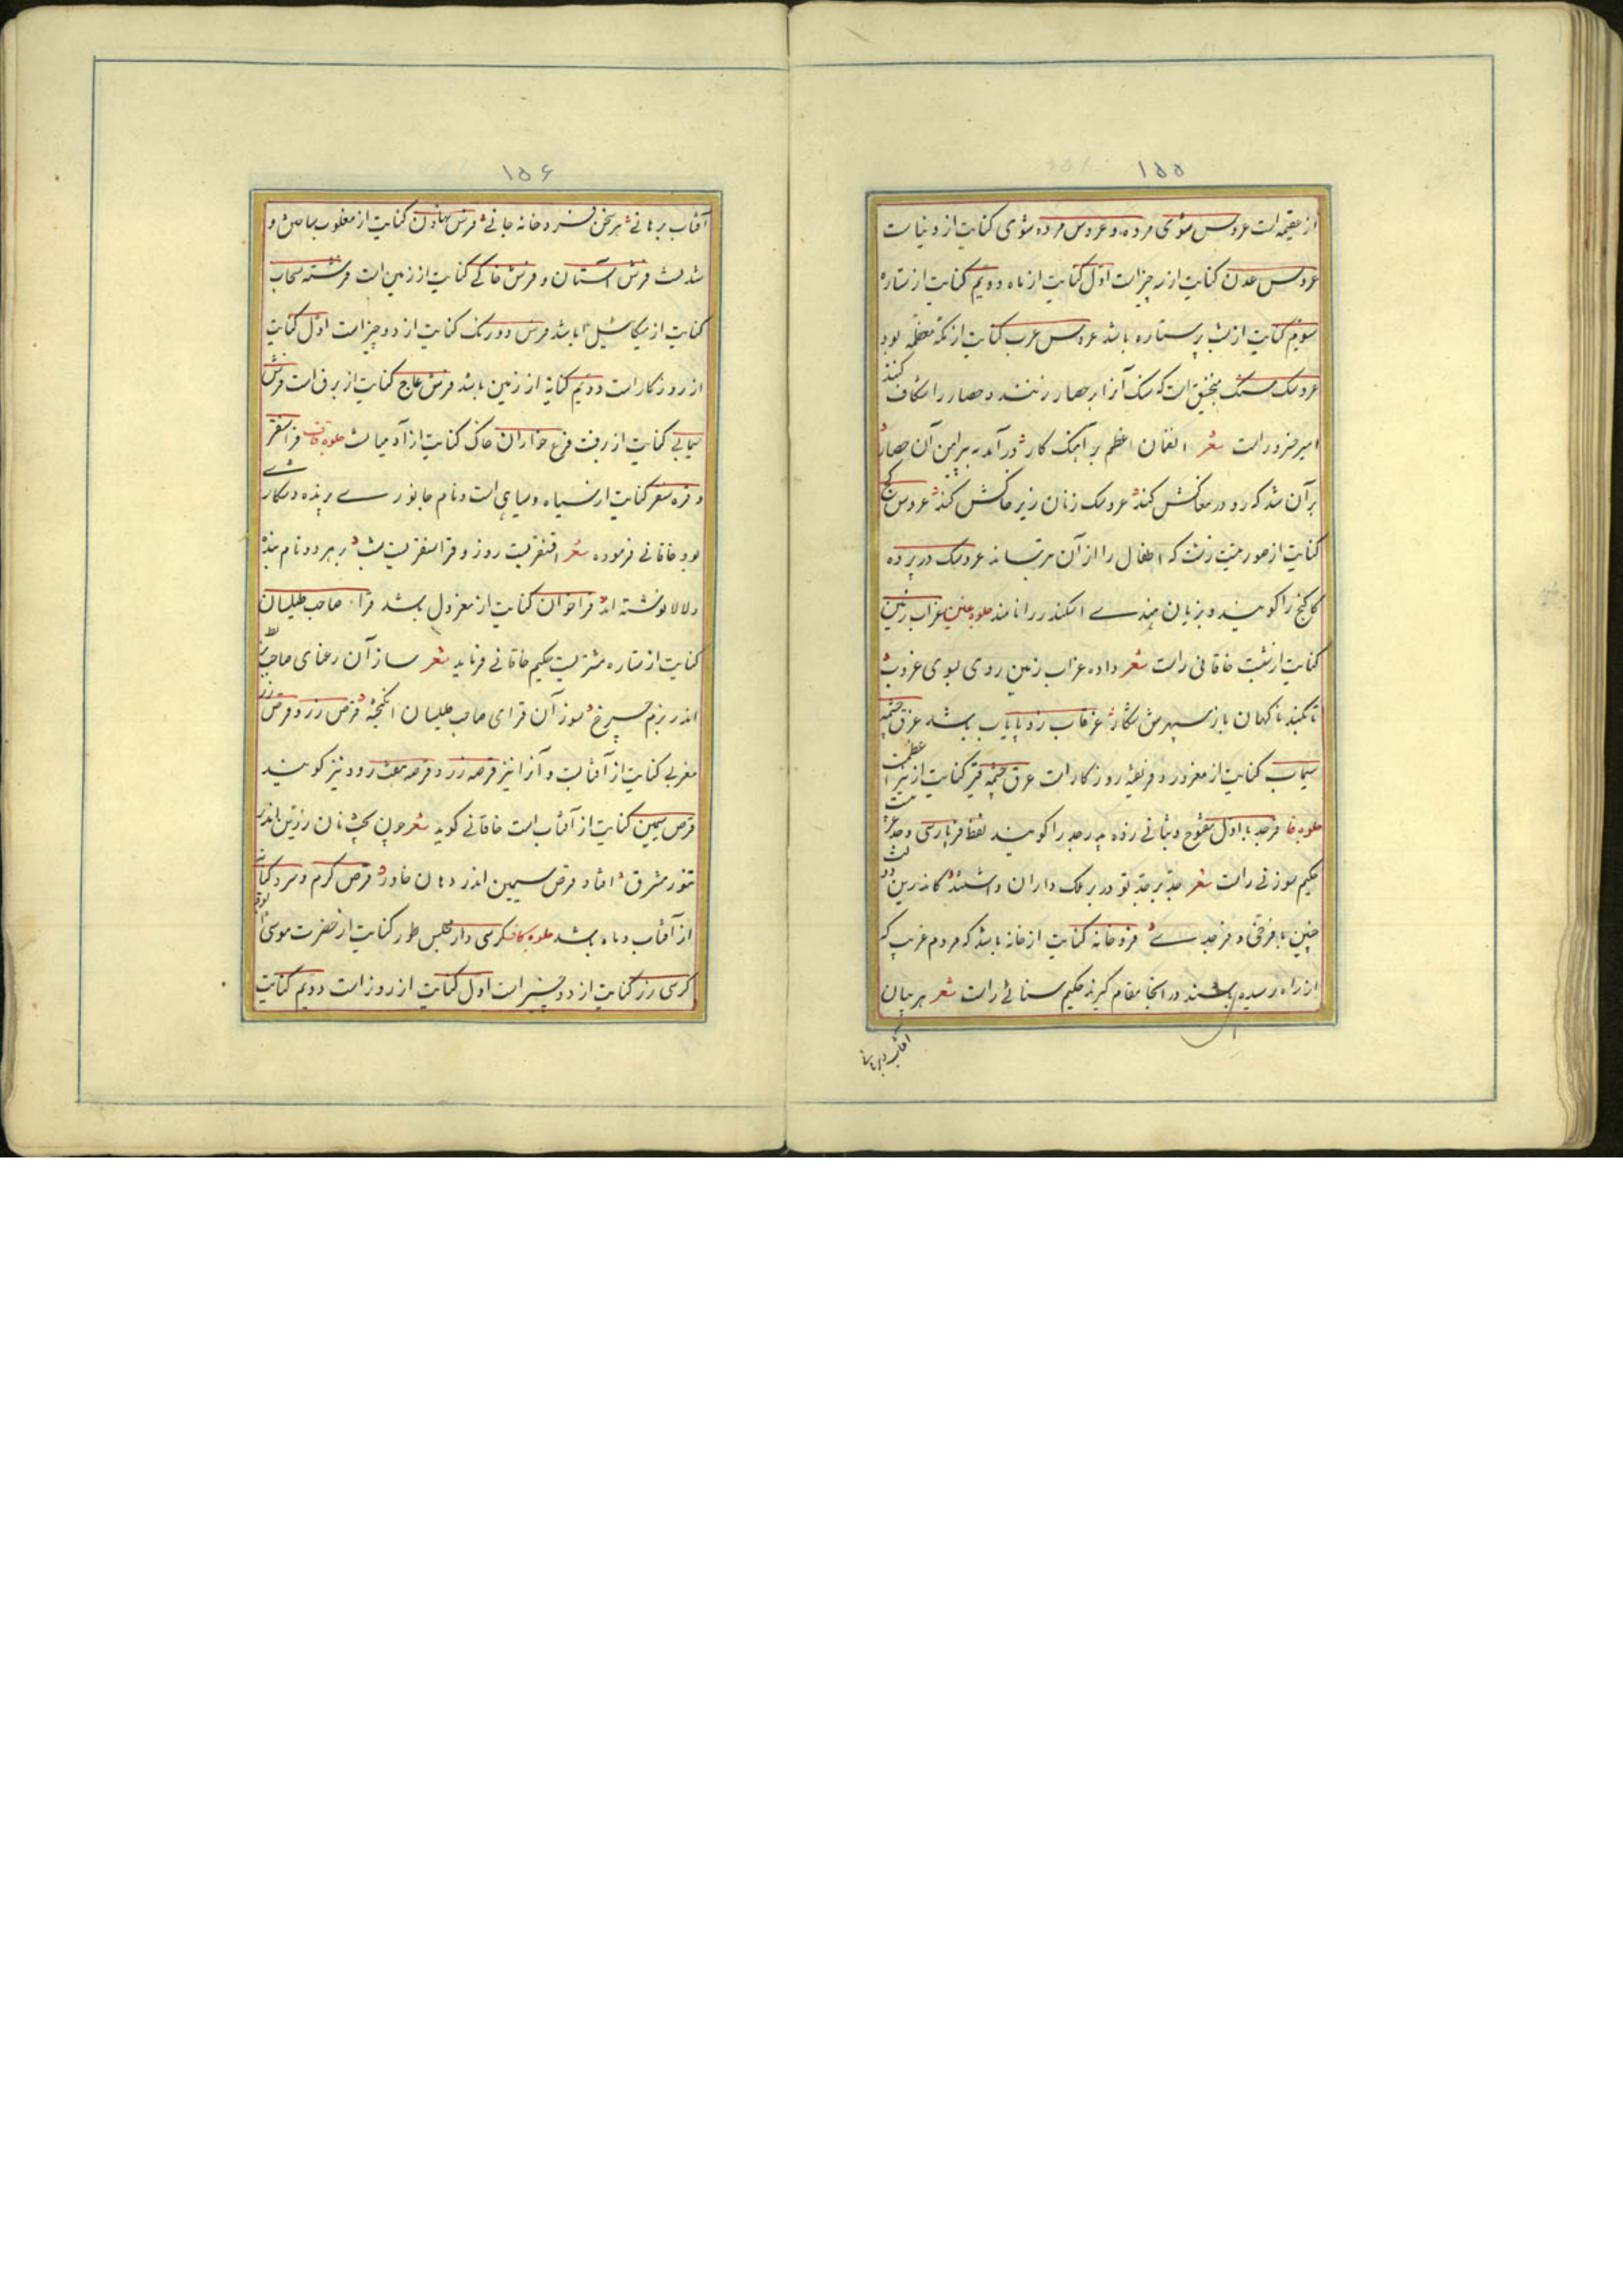 ۱۵۵
از عقیمه است عروس شوی مرده و عروس مرده شوی کنایت از دنیاست
عروس عدن کنایت از سه چیز است اول کنایت از ماه دویم کنایت از ستاره
سویم کنایت از شب پر ستاره باشد عروس عرب کنایت از مکه معظمه بود
عروسک سنک منجنیق است که سنک آنرا بر حصار زنند و حصار را شکاف کنند
امیر خسرو راست شعر الغخان اعظم بر آهنک کار در آمد به پیرامن آن حصار
بر آن شد که رو در مغاکش کند عروسک زنان زیر خاکش کند عروس
کنایت از صورتیست زشت که اطفال را از آن بترسانند عروسک در پرده
کاکنج را کویند و بزبان هندی اسکند را نامند جلوه غین غراب زمین
کنایت از شب خاقانی راست شعر داده غراب زمین روی بسوی غروب
تا نکند ناکهان باز سپهرش شکار غرقاب رز پایاب باشد غرق چشمه
سیماب کنایت از مغرور و فریفته روزکار است غرق چشمه قیر کنایت از
جلوه فا فرجد با اول مفتوح و بثانی زده پدر جد را کویند لفظ فر پارسی و جد
حکیم سوزنی راست شعر جد بر جد تو در بر ملک داران داشتند کاندرین
چنین با فرخی و فرجدی فرو خانه کنایت از خانه باشد که مردم غریب که
از راه رسیده باشند در آنجا مقام کیرند حکیم سنائی راست شعر هر بیان
آفتاب برهانی
۱۵۶
آفتاب برهانی هر سخن فرد خانه جانی فرش کنایت از مغلوب ساختن و
شدنست فرش آستان و فرش خاکی کنایت از زمین است فرشته سحاب
کنایت از میکائیل باشد فرش دو رنک کنایت از دو چیز است اول کنایت
از روزکار است دویم کنایة از زمین باشد فرش عاج کنایت از برف است فرش
سیمابی کنایت از برفست فرع خواران خاک کنایت از آدمیانست جلوه قاف قراسنقر
و قره سنقر کنایت از سیاه و سیاهی است و نام جانوری پرنده و شکاری
بود خاقانی فرموده شعر اقسنقریست روز و قراسنقریست شب بر هر دو نام بنده
و لالا نوشته اند قراخوان کنایت از معزول باشد قراء صاحب طیلسان
کنایت از ستاره مشتریست حکیم خاقانی فرماید شعر ساز آن رعنای صاحب
اندر بزم چرخ سوز آن قرای صاحب طیلسان انکیخته قرص زر و قرص
مغربی کنایت از آفتابست و آنرا نیز قرصه زر و قرصه نیز کویند
قرص سیمین کنایت از آفتاب است خاقانی کوید شعر چون پخت نان زرین اندر
تنور مشرق افتاد قرص سیمین اندر دهان خاور قرص کرم و سرد کنایت
از آفتاب و ماه باشد جلوه کاف کرسی دار مجلس طور کنایت از حضرت موسی
کرسی زر کنایت از دو چیز است اول کنایت از روز است دویم کنایت